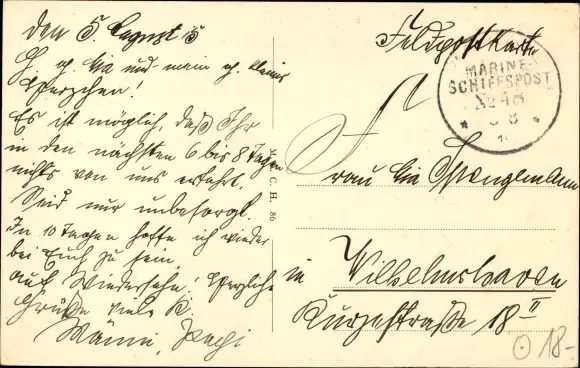 den 5. August 15
und mein kleines
Herzchen!
Es ist möglich, daß Ihr
in den nächsten 6 bis 8 Tagen
nichts von uns erfahrt.
Seid nur unbesorgt.
In 10 Tagen hoffe ich wieder
bei Euch zu sein.
Auf Wiedersehn! Herzliche
Grüße viele K.
Männi, Papi
M. C. H. 86
Feldpostkarte
MARINE-
SCHIFFSPOST
No 48
Frau
in Wilhelmshaven
Kurzestraße 18 II
18-